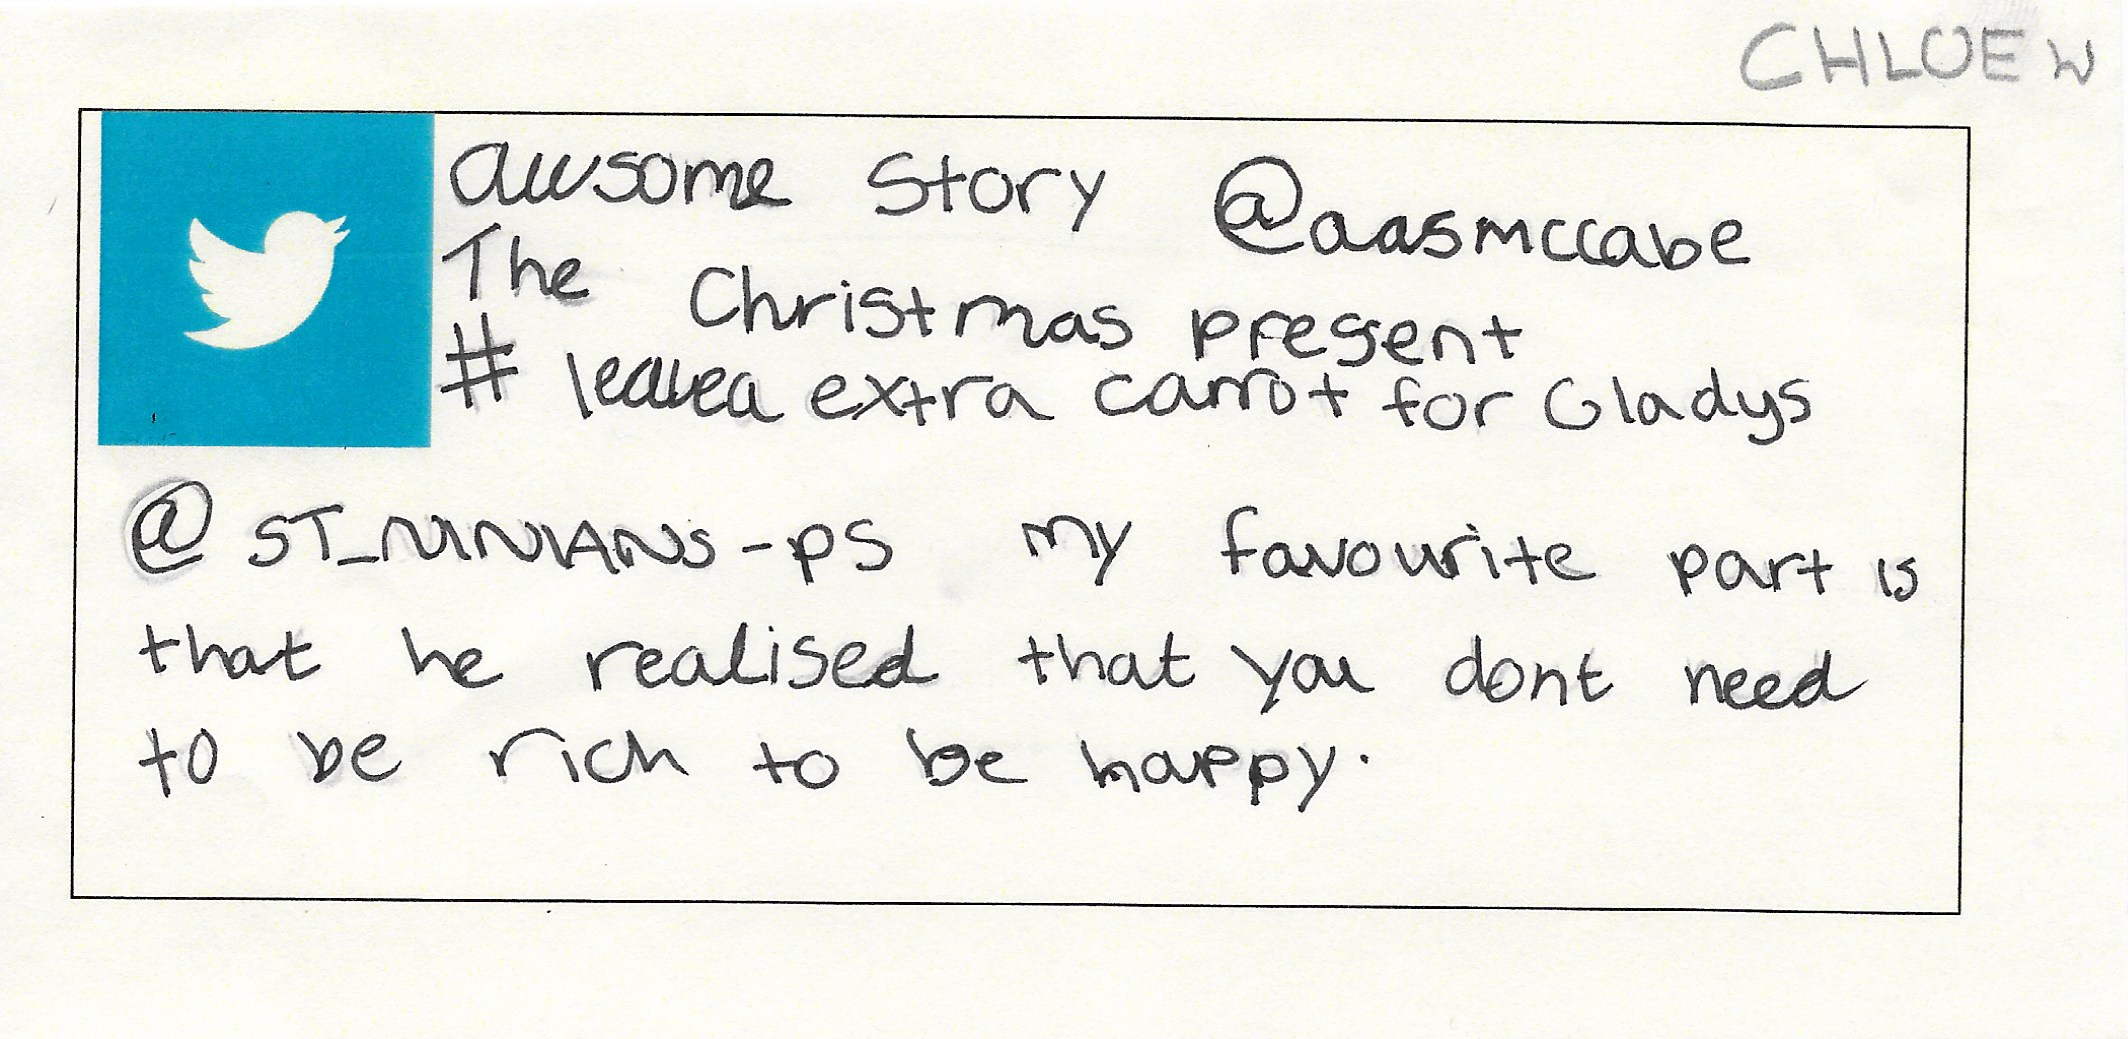 CHLOE W
awsome Story @aasmccabe
The Christmas present
# leavea extra carrot for Gladys
@ ST_NINIANS-PS my favourite part is
that he realised that you dont need
to be rich to be happy.